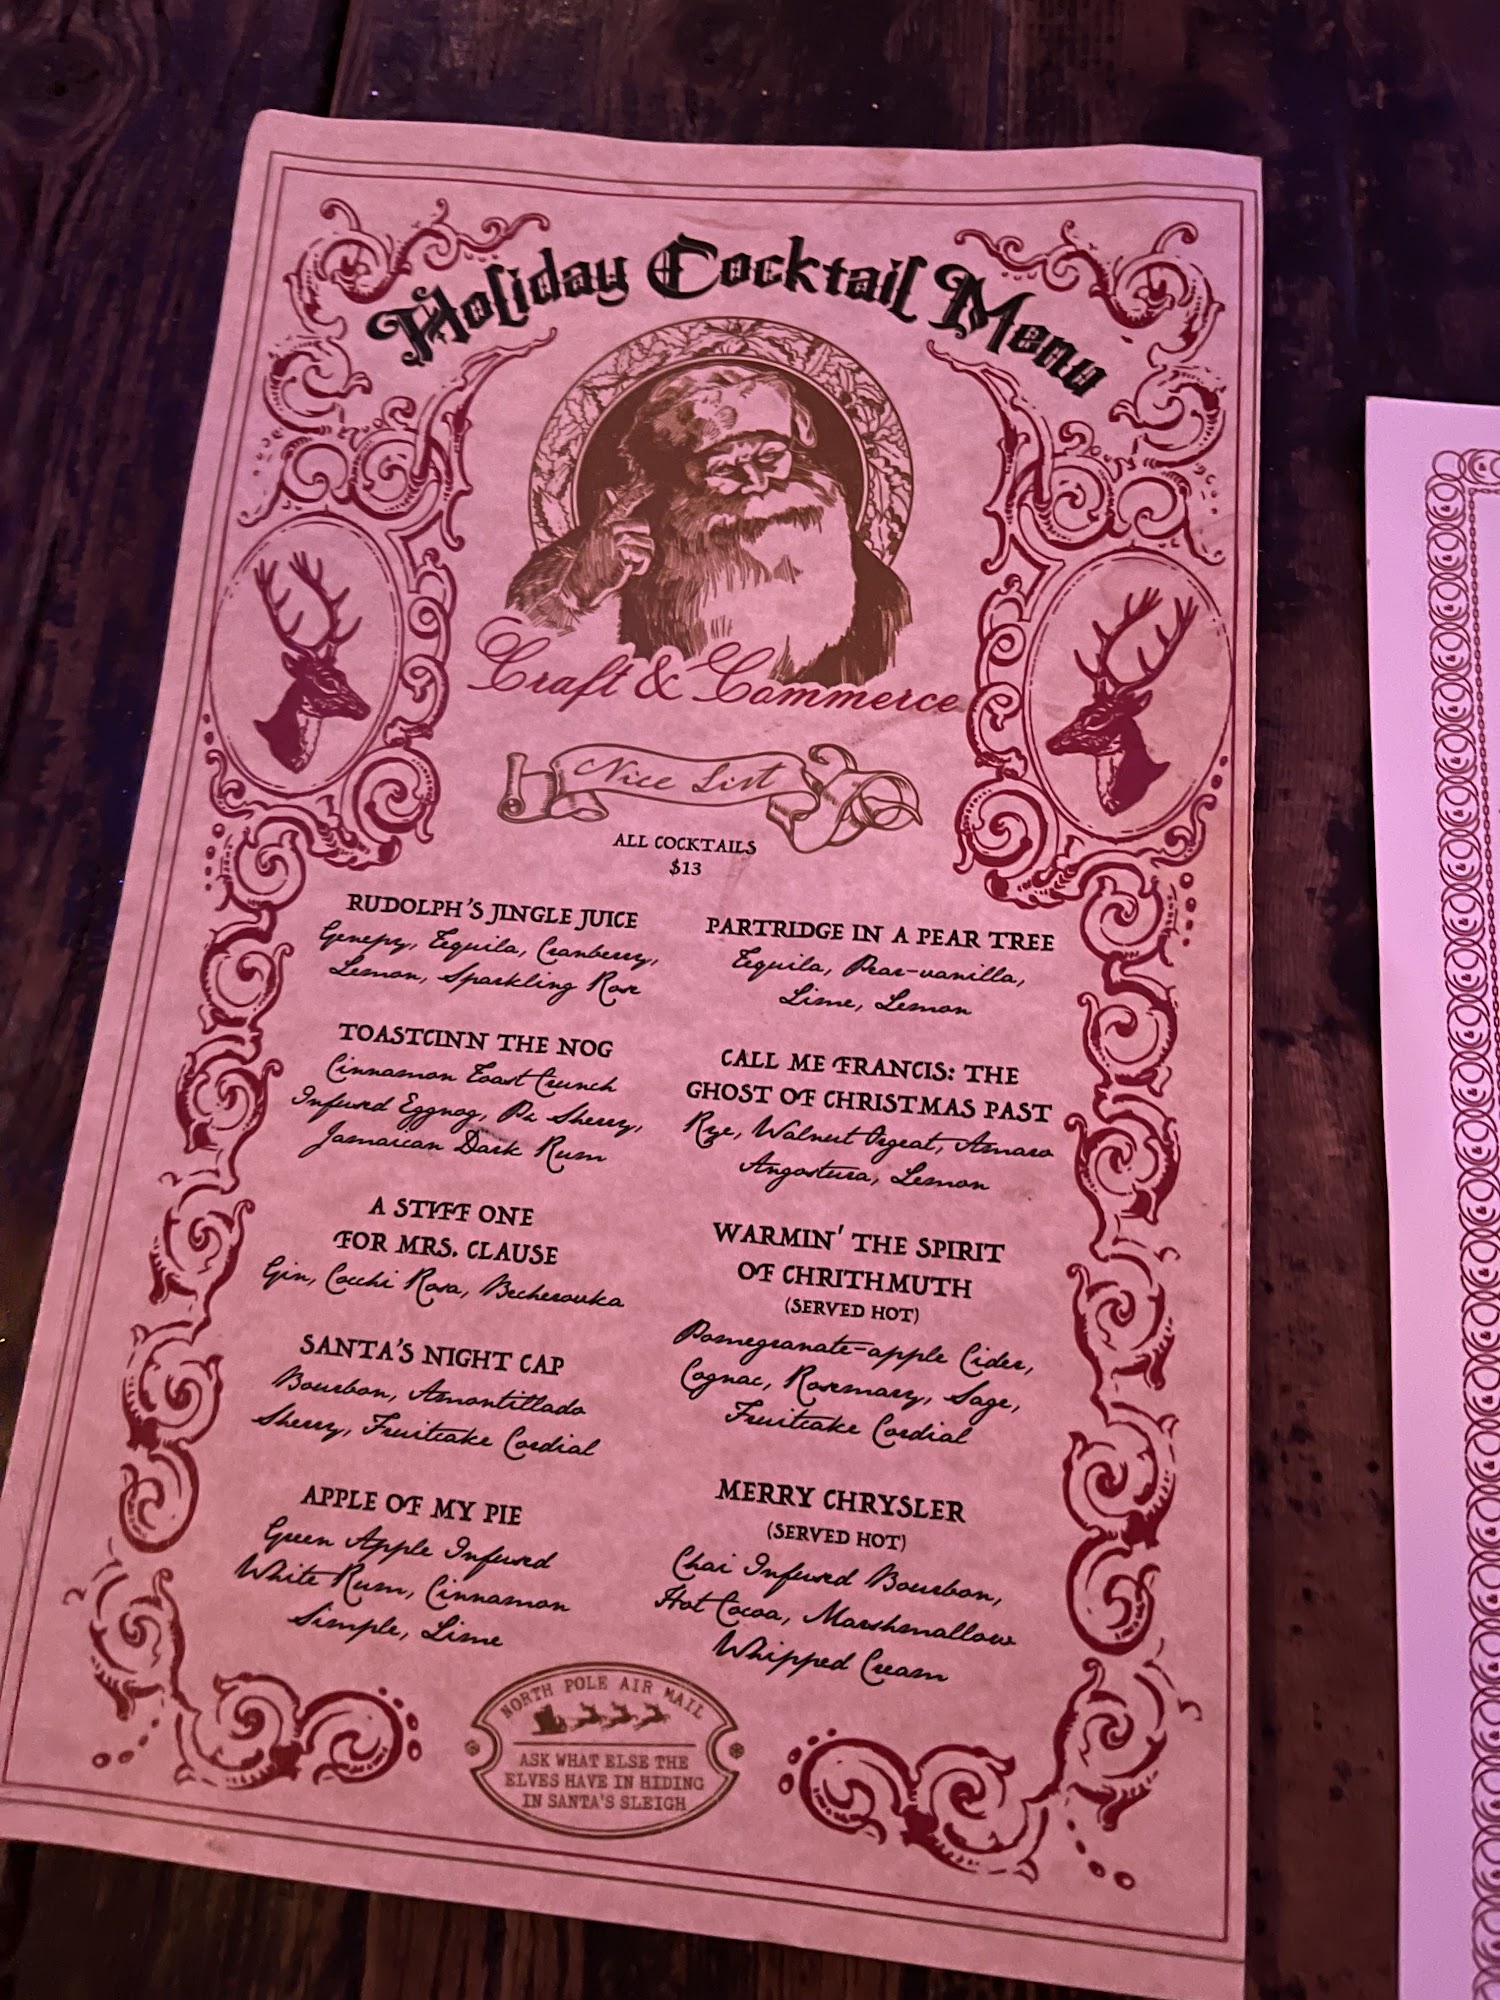 Holiday Cocktail Menu
Craft & Commerce
Nice List
ALL COCKTAILS
$13
RUDOLPH'S JINGLE JUICE
Genepy, Tequila, Cranberry,
Lemon, Sparkling Rose
TOASTCINN THE NOG
Cinnamon Toast Crunch
Infused Eggnog, Px Sherry,
Jamaican Dark Rum
A STIFF ONE
FOR MRS. CLAUSE
Gin, Cocchi Rosa, Becherovka
SANTA'S NIGHT CAP
Bourbon, Amontillado
Sherry, Fruitcake Cordial
APPLE OF MY PIE
Green Apple Infused
White Rum, Cinnamon
Simple, Lime
PARTRIDGE IN A PEAR TREE
Tequila, Pear-vanilla,
Lime, Lemon
CALL ME FRANCIS: THE
GHOST OF CHRISTMAS PAST
Rye, Walnut Orgeat, Amaro
Angostura, Lemon
WARMIN' THE SPIRIT
OF CHRITHMUTH
(SERVED HOT)
Pomegranate-apple Cider,
Cognac, Rosemary, Sage,
Fruitcake Cordial
MERRY CHRYSLER
(SERVED HOT)
Chai Infused Bourbon,
Hot Cocoa, Marshmallow
Whipped Cream
NORTH POLE AIR MAIL
ASK WHAT ELSE THE
ELVES HAVE IN HIDING
IN SANTA'S SLEIGH